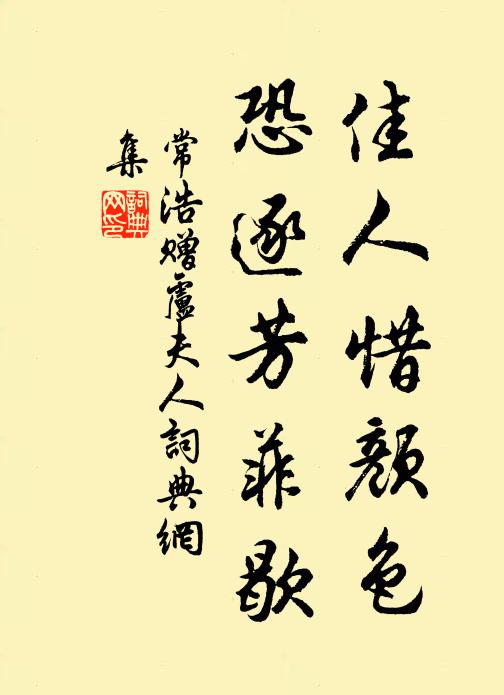 佳人惜顏色
恐逐芳菲歇
常浩贈盧夫人詞典網
集
詞典
网印